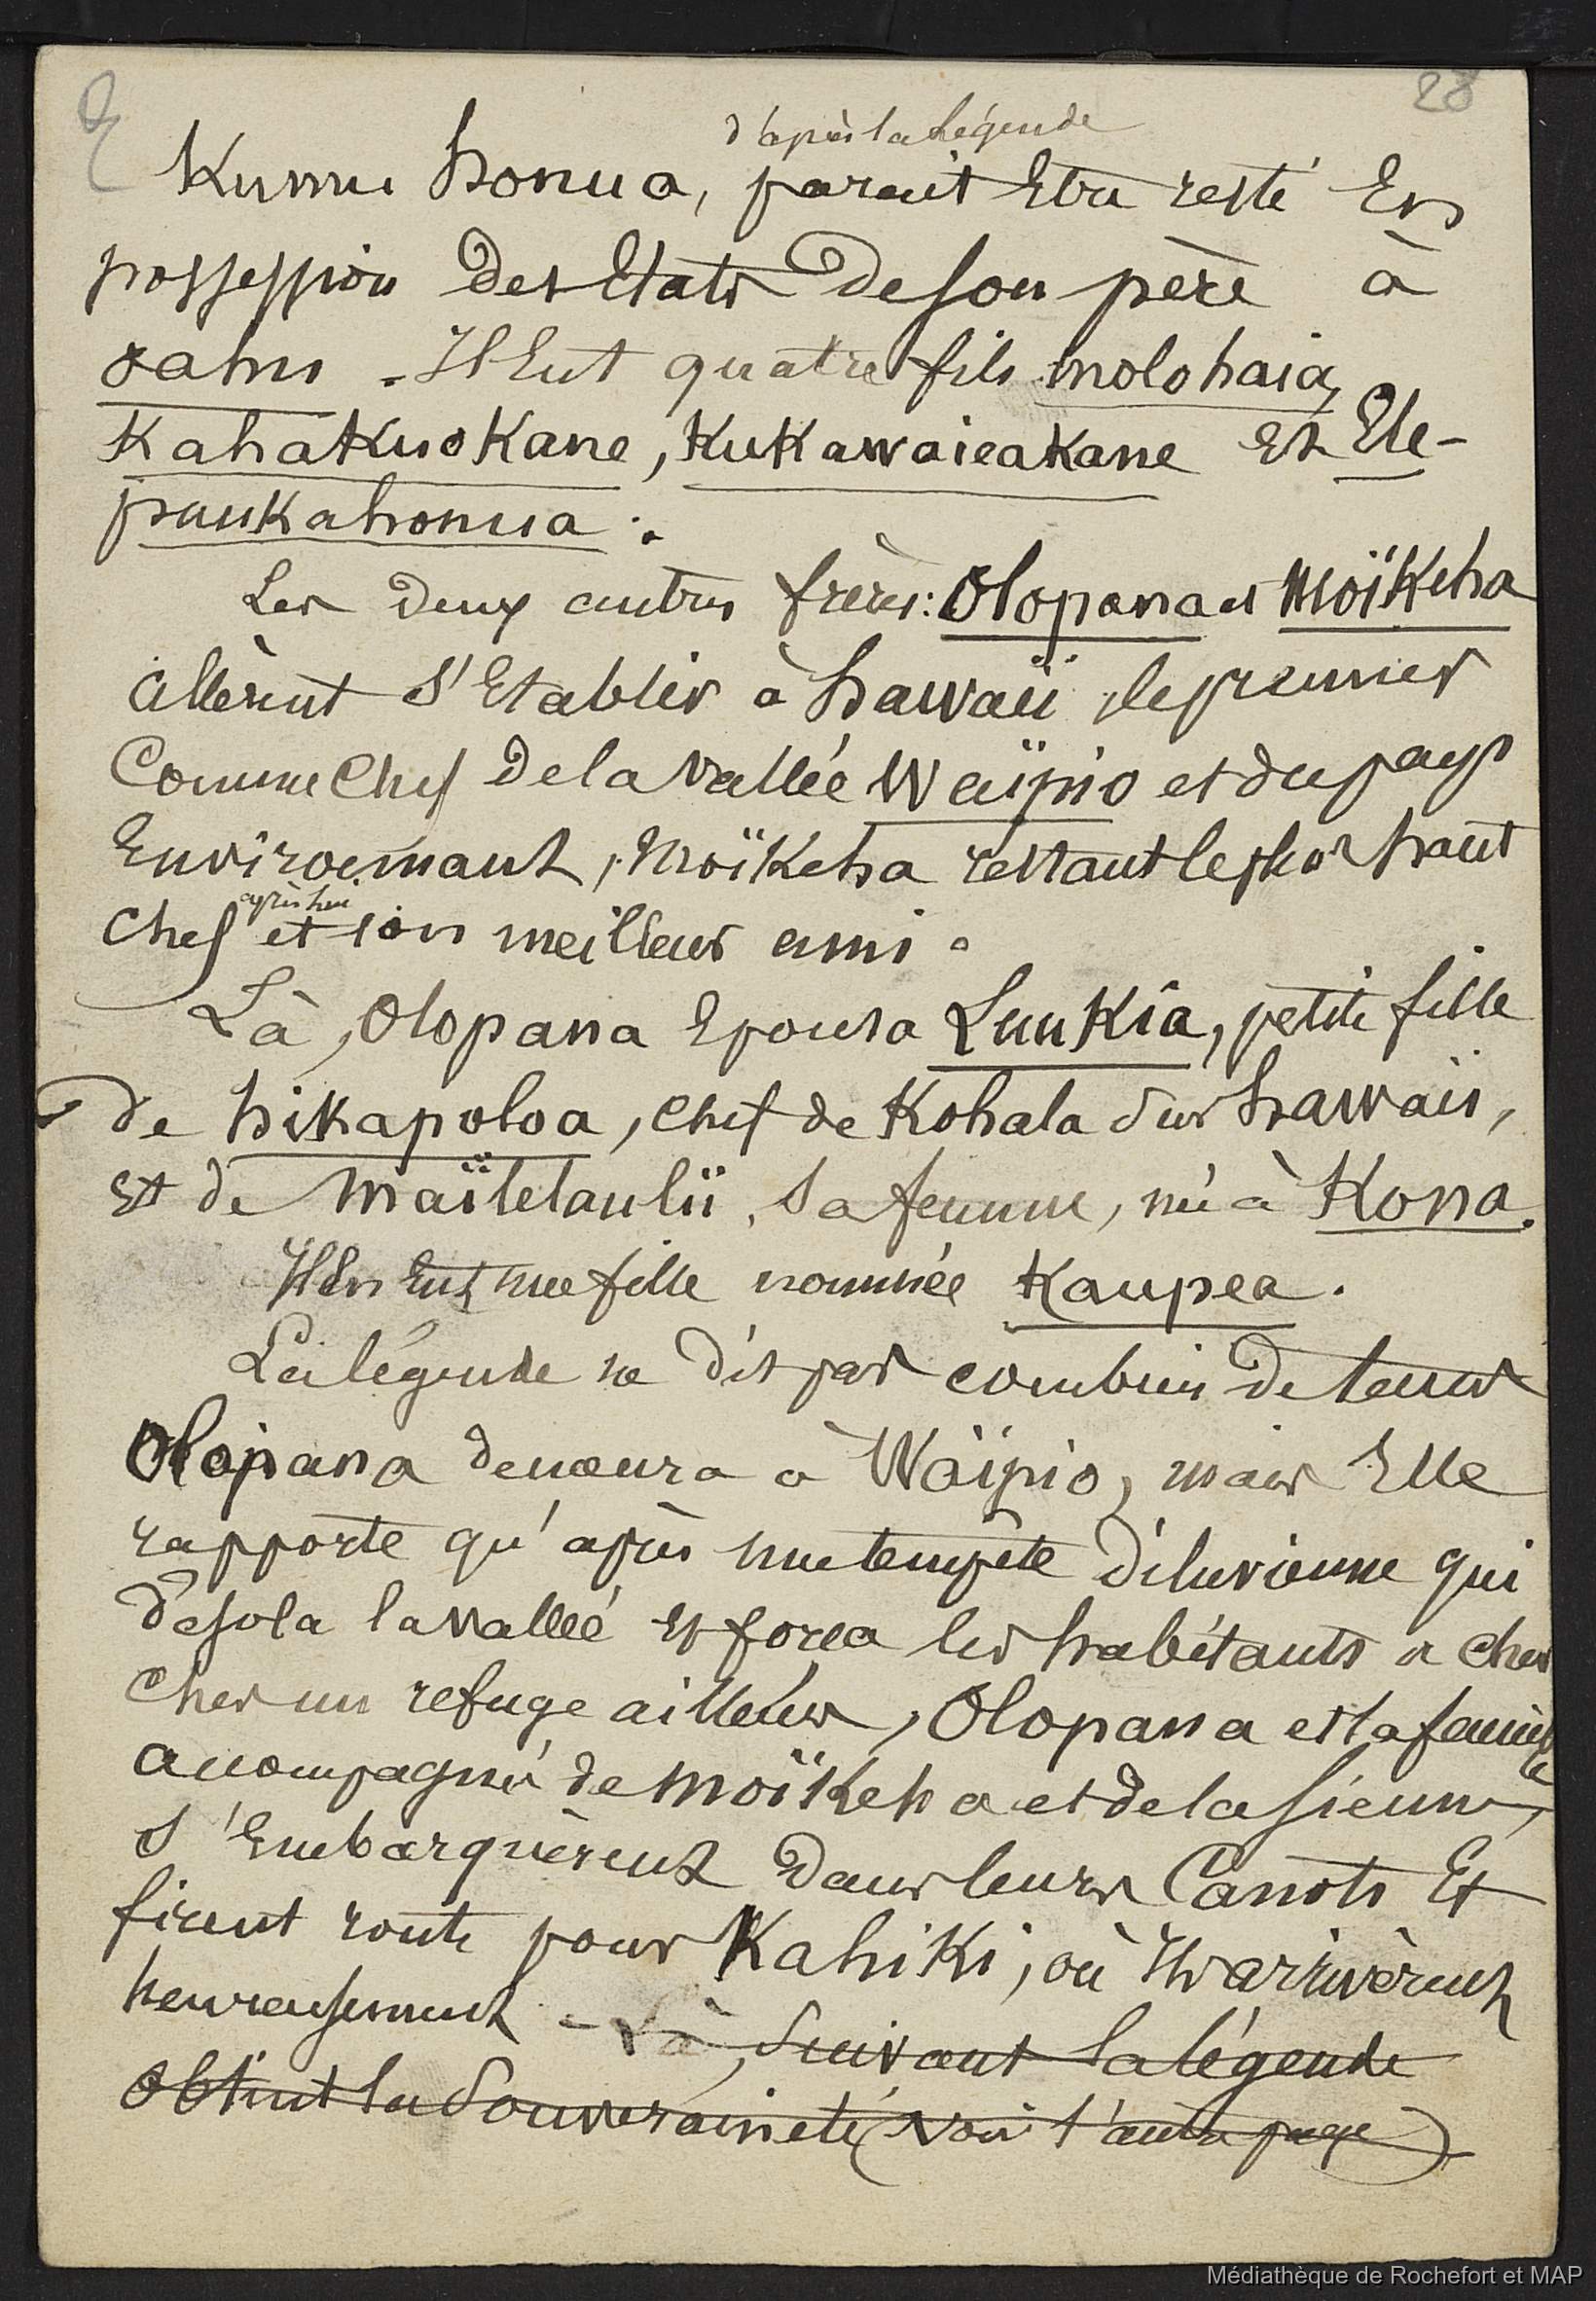 28
d'après la Légende
Kumu honua, parait Etre resté En
possession des Etats de son père à
oahu. Il Eut quatre fils molohaia,
Kahakuokane, Kukawaieakane Et Ele-
puukahonua.
Les deux autres frères: Olopana et Moïkeha
allèrent s'Etablir à hawaii, le premier
Comme Chef de la vallée Waïpio et du pays
Environnant, Moïkeha restant le plus haut
après lui
Chef et son meilleur ami.
Là, Olopana Epousa Luukia, petite fille
de hikapoloa, chef de Kohala sur hawaii,
Et de Maïlelaulii, sa femme, née à Kona.
Il En Eut une fille nommée Kaupea.
La légende ne dit pas combien de temps
Olopana demeura à Waïpio, mais Elle
rapporte qu'après une tempête diluvienne qui
désola la vallée Et força les habitants a cher
cher un refuge ailleurs, Olopana et sa famille
accompagné de Moïkeha et de la sienne,
s'Embarquèrent dans leurs Canots Et
firent route pour Kahiki, où Ils arrivèrent
heureusement - Là, suivant la légende
obtint la Souveraineté (voir l'autre page)
Médiathèque de Rochefort et MAP